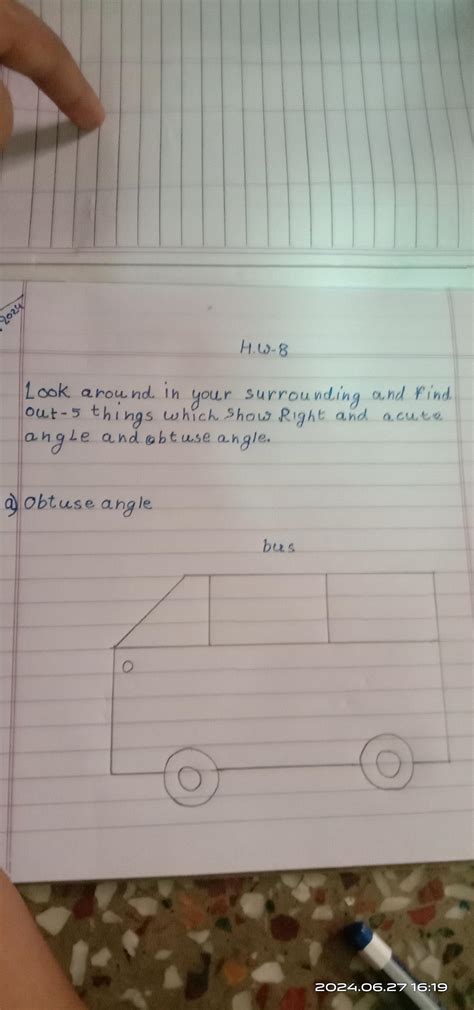 2024
H.W-8
Look around in your surrounding and find
out-5 things which show Right and acute
angle and obtuse angle.
a) Obtuse angle
bus
2024.06.27 16:19